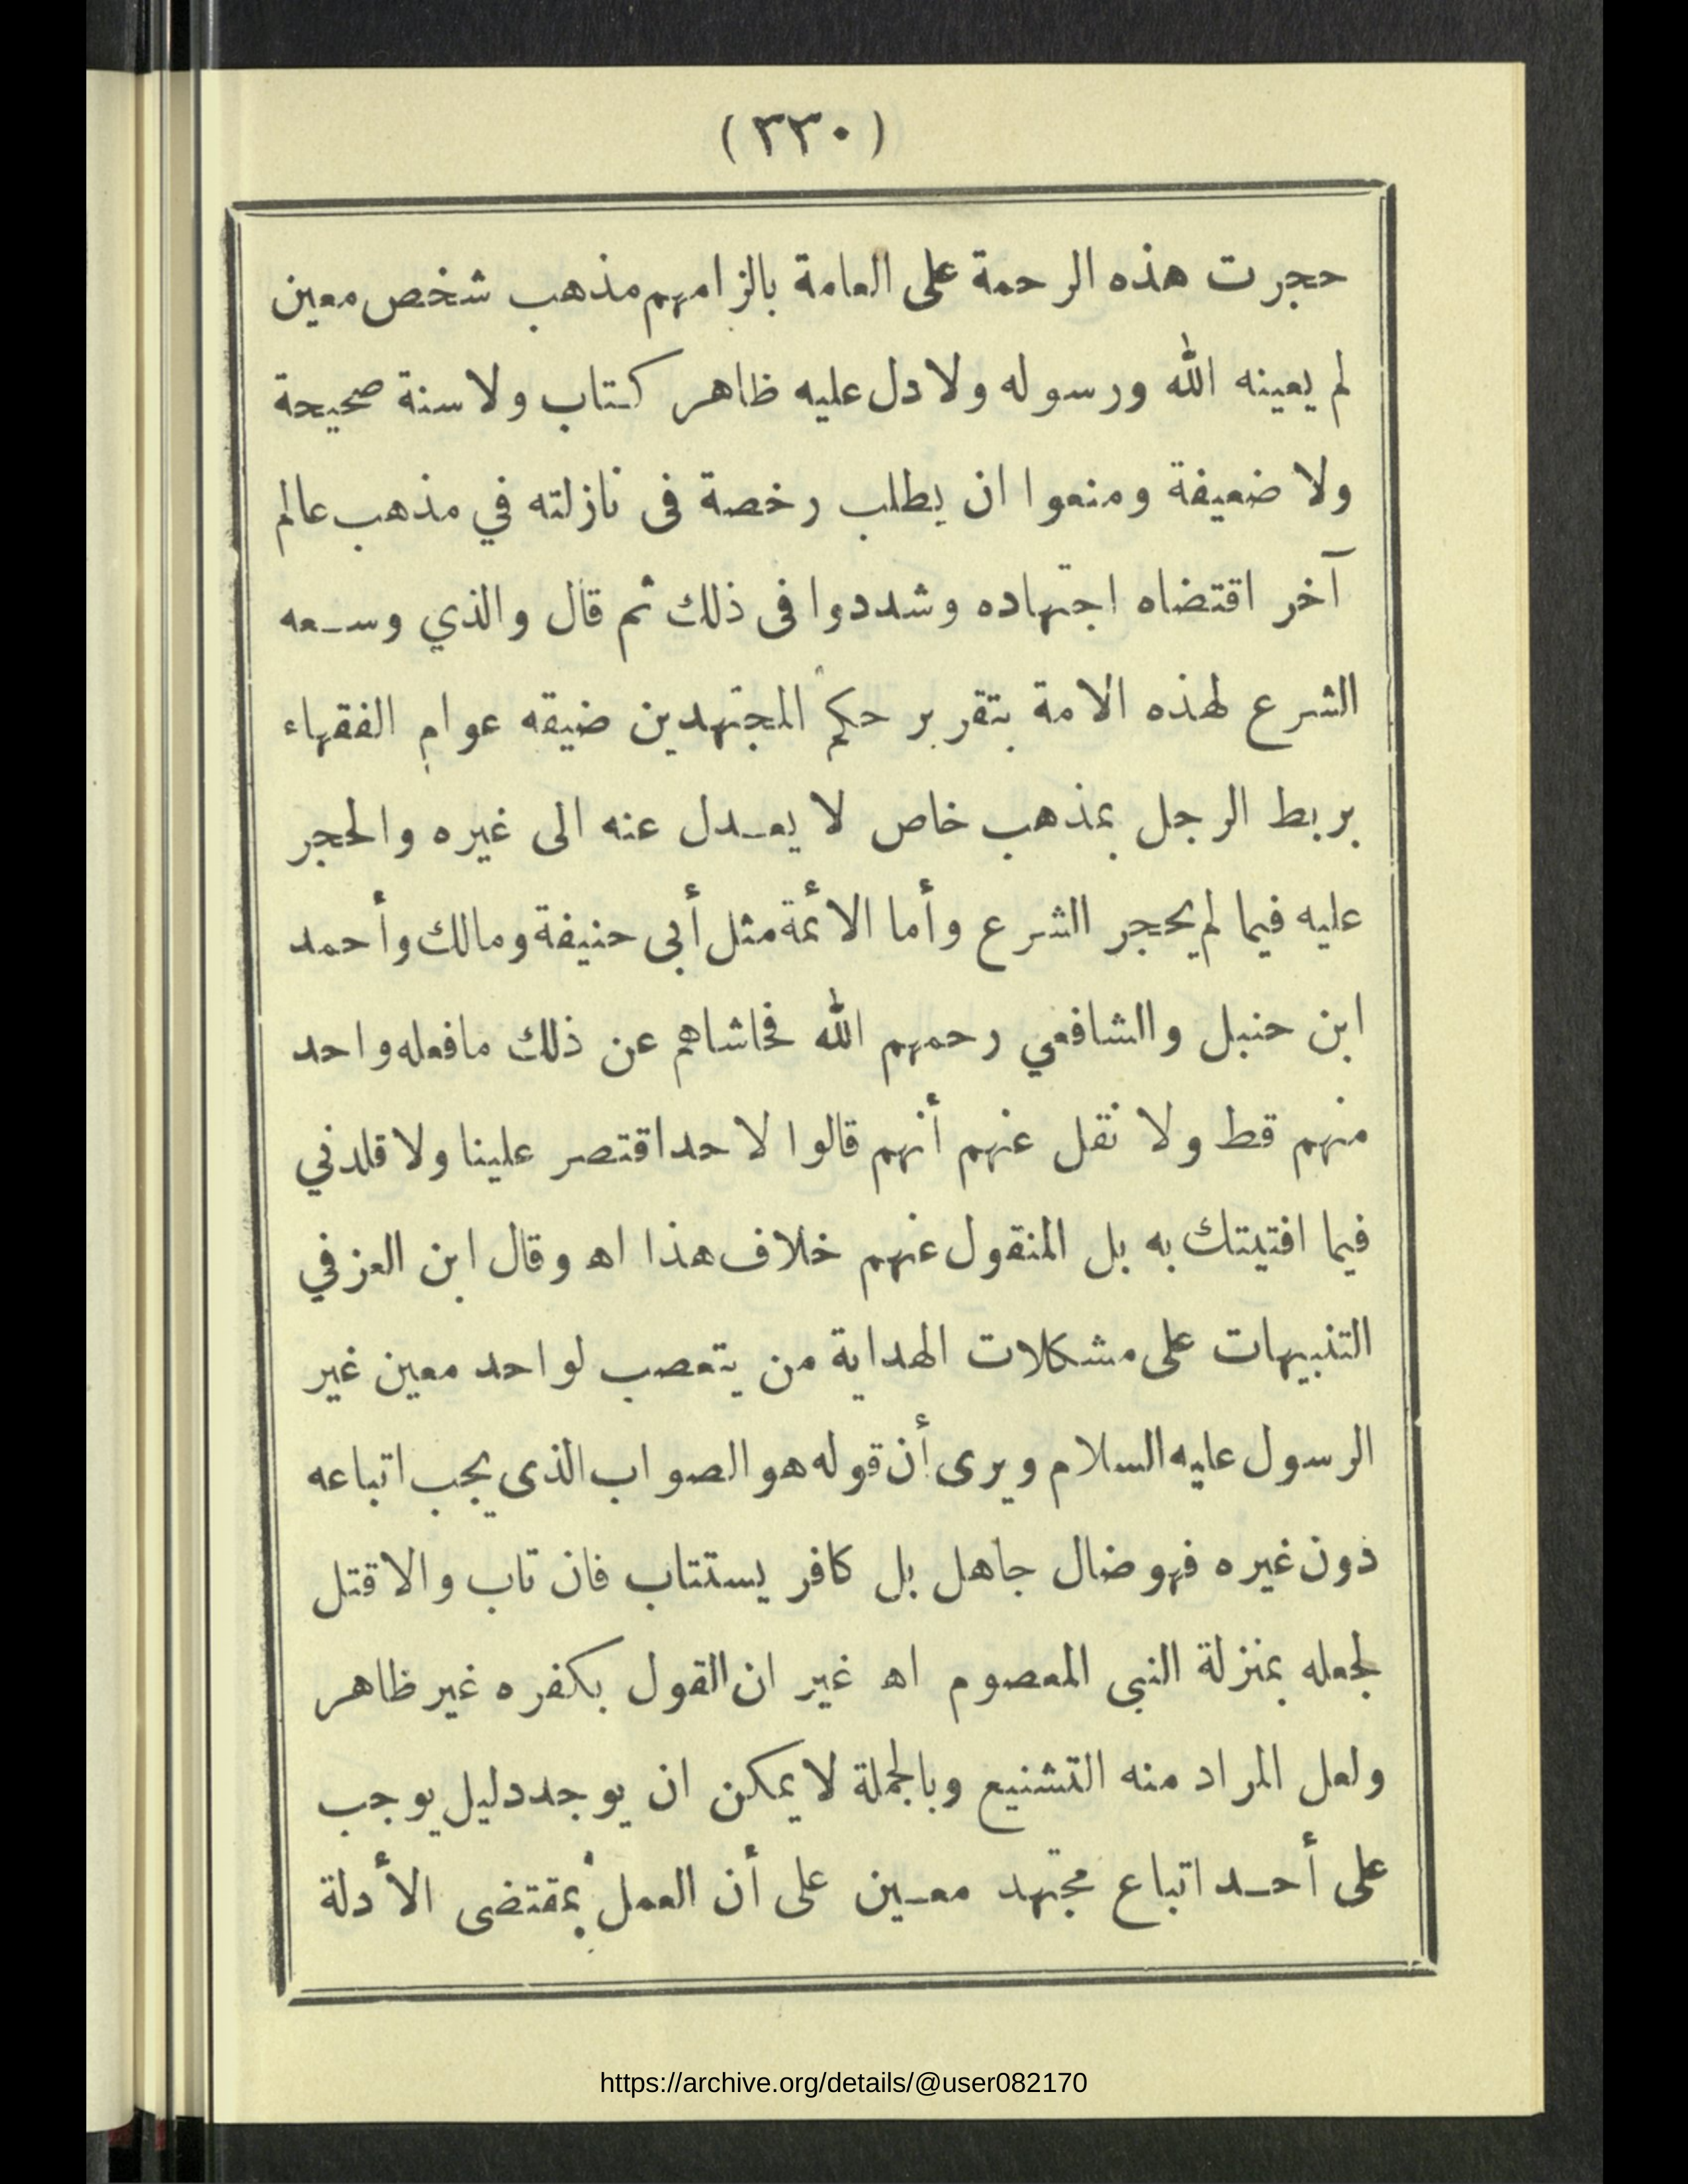 (٣٣٠)
حجرت هذه الرحمة على العامة بالزامهم مذهب شخص معين
لم يعينه الله ورسوله ولا دل عليه ظاهر كتاب ولا سنة صحيحة
ولا ضعيفة ومنعوا ان يطلب رخصة فى نازلته في مذهب عالم
آخر اقتضاه اجتهاده وشددوا فى ذلك ثم قال والذي وسعه
الشرع لهذه الامة بتقرير حكم المجتهدين ضيقه عوام الفقهاء
بربط الرجل بمذهب خاص لا يعدل عنه الى غيره والحجر
عليه فيما لم يحجر الشرع وأما الأئمة مثل أبى حنيفة ومالك وأحمد
ابن حنبل والشافعي رحمهم الله فحاشاهم عن ذلك ما فعله واحد
منهم قط ولا نقل عنهم أنهم قالوا لاحد اقتصر علينا ولا قلدني
فيما افتيتك به بل المنقول عنهم خلاف هذا اه وقال ابن العز في
التنبيهات على مشكلات الهداية من يتعصب لواحد معين غير
الرسول عليه السلام ويرى أن قوله هو الصواب الذى يجب اتباعه
دون غيره فهو ضال جاهل بل كافر يستتاب فان تاب والا قتل
لجعله بمنزلة النبي المعصوم اه غير ان القول بكفره غير ظاهر
ولعل المراد منه التشنيع وبالجملة لا يمكن ان يوجد دليل يوجب
على أحد اتباع مجتهد معين على أن العمل بمقتضى الأدلة
https://archive.org/details/@user082170